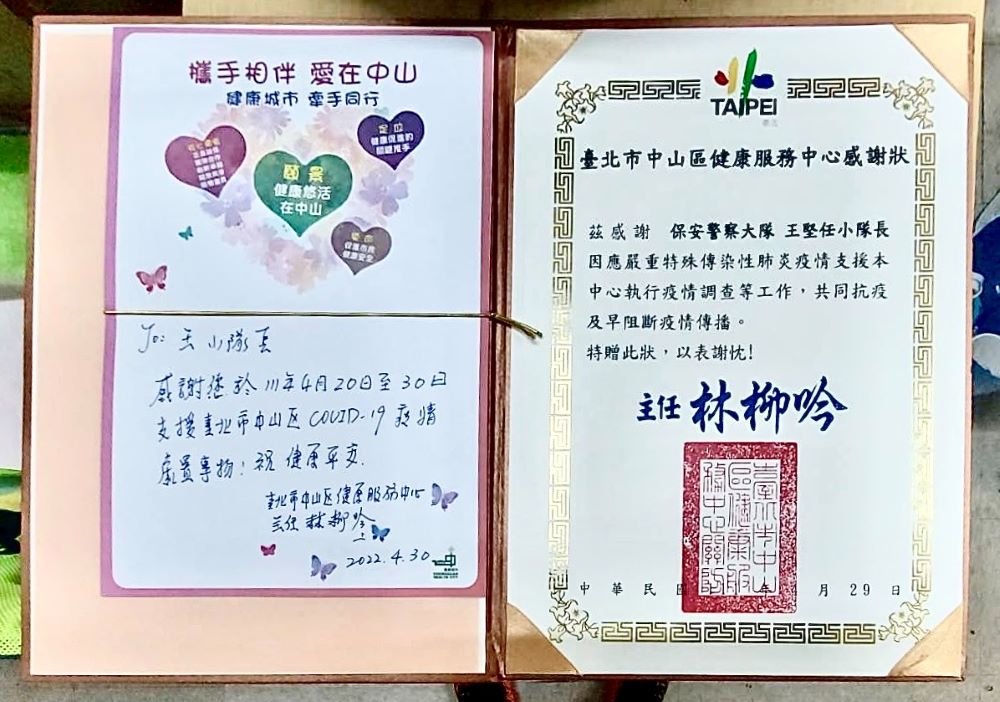 攜手相伴 愛在中山
健康城市 牽手同行
定位
健康促進的
關鍵推手
願景
健康悠活
在中山
使命
促進市民
健康安全
To: 王小隊長
感謝您於111年4月20日至30日
支援臺北市中山区COVID-19疫情
處置事物！祝 健康平安.
臺北市中山区健康服務中心
主任 林柳吟
2022.4.30
TAIPEI
臺北市中山區健康服務中心感謝狀
茲感謝 保安警察大隊 王堅任小隊長
因應嚴重特殊傳染性肺炎疫情支援本
中心執行疫情調查等工作，共同抗疫
及早阻斷疫情傳播。
特贈此狀，以表謝忱!
主任 林柳吟
中華民國 年 月 29 日